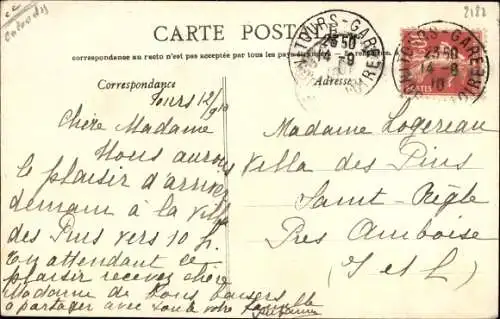 2182
CARTE POSTALE
correspondance au recto n'est pas acceptée par tous les pays
Correspondance
Adresse
TOURS-GARE
23 50
14 -9
10
TOURS-GARE
23 50
14 -9
10
POSTES
Tours
Chère Madame
Nous aurons
le plaisir d'arriver
demain à la villa
des Pins vers 10 h.
En attendant ce
plaisir recevez chère
Madame de bons baisers
à partager avec toute votre famille
Suzanne
Madame Logereau
Villa des Pins
Saint-Règle
Près Amboise
(I et L)